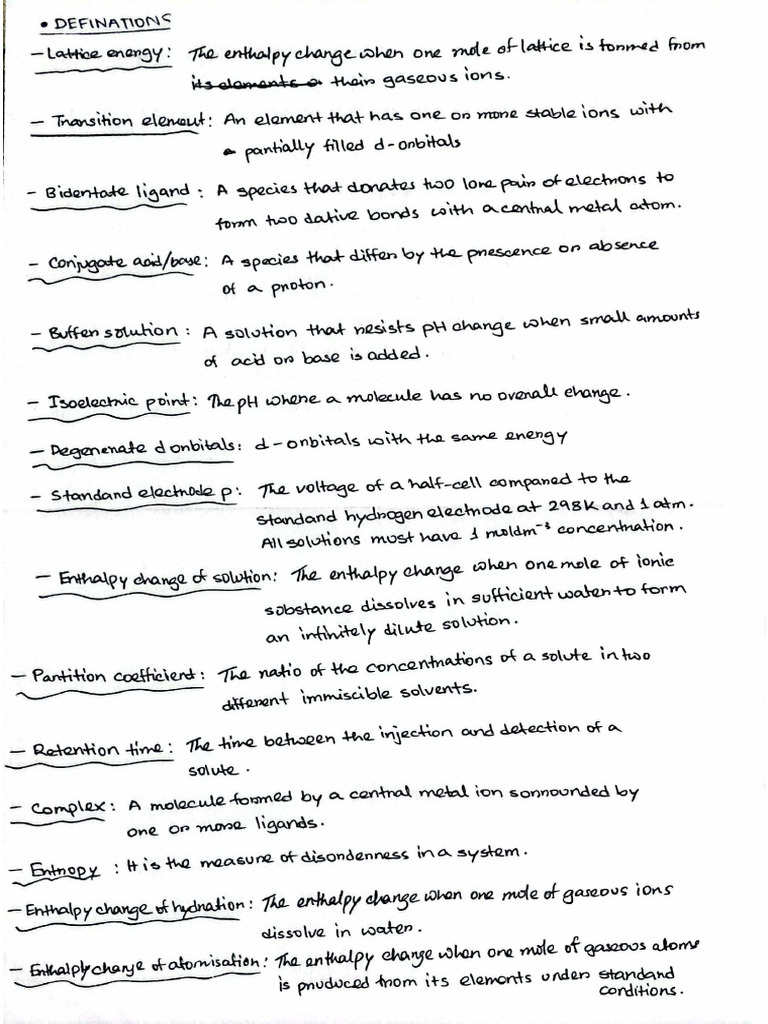 • DEFINATIONS
– Lattice energy: The enthalpy change when one mole of lattice is formed from
its elements o their gaseous ions.
– Transition element: An element that has one or more stable ions with
partially filled d-orbitals
– Bidentate ligand : A species that donates two lone pair of electrons to
form two dative bonds with a central metal atom.
– Conjugate acid/base: A species that differ by the prescence or absence
of a proton.
– Buffer solution : A solution that resists pH change when small amounts
of acid or base is added.
– Isoelectric point: The pH where a molecule has no overall charge.
– Degenerate d orbitals: d-orbitals with the same energy
– Standard electrode p: The voltage of a half-cell compared to the
standard hydrogen electrode at 298K and 1 atm.
All solutions must have 1 moldm⁻³ concentration.
– Enthalpy change of solution: The enthalpy change when one mole of ionic
substance dissolves in sufficient water to form
an infinitely dilute solution.
– Partition coefficient: The ratio of the concentrations of a solute in two
different immiscible solvents.
– Retention time: The time between the injection and detection of a
solute.
– Complex: A molecule formed by a central metal ion sorrounded by
one or more ligands.
– Entropy : It is the measure of disorderness in a system.
– Enthalpy change of hydration: The enthalpy change when one mole of gaseous ions
dissolve in water.
– Enthalply change of atomisation: The enthalpy change when one mole of gaseous atoms
is pruduced from its elements under standard
conditions.